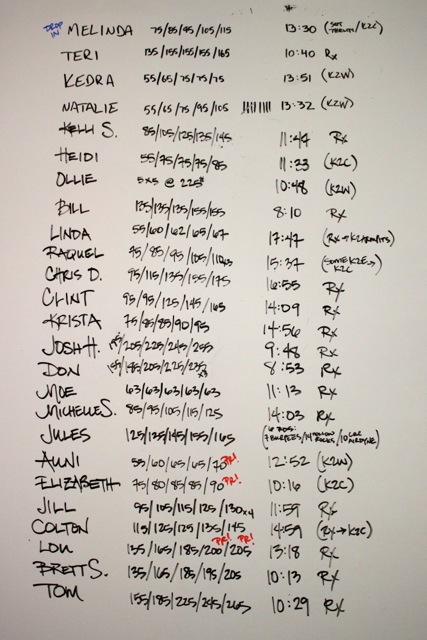 DROP IN MELINDA 75/85/95/105/115 13:30 (K2C)
TERI 135/155/155/155/165 10:40 Rx
KEDRA 55/65/75/75/75 13:51 (K2W)
NATALIE 55/65/75/95/105 13:32 (K2W)
KELLI S. 85/105/125/135/145 11:44 Rx
HEIDI 55/75/75/75/85 11:33 (K2C)
OLLIE 5x5 @ 225# 10:48 (K2W)
BILL 135/135/135/155/155 8:10 Rx
LINDA 55/60/62/65/67 17:47
RAQUEL 75/85/95/105/110 15:37 (SOME K2E → K2C
CHRIS D. 95/115/135/155/175 16:55 Rx
CLINT 95/95/125/145/165 14:09 Rx
KRISTA 75/85/85/90/95 14:56 Rx
JOSH H. 185/205/225/245/255 9:48 Rx
DON 155/185/205/225/235 x3 8:53 Rx
MOE 63/63/63/63/63 11:13 Rx
MICHELLE S. 85/95/105/115/125 14:03 Rx
JULES 125/135/145/155/165 7 BURPEES/14 HOLLOW ROCKS/10
AUNI 55/60/65/65/70 PR! 12:52 (K2W)
ELIZABETH 75/80/85/85/90 PR! 10:16 (K2C)
JILL 95/105/115/125/130x4 11:59 Rx
COLTON 115/125/125/135/145 14:59 (Rx→K2C)
LOU 135/165/185/200 PR!/205 PR! 13:18 Rx
BRETT S. 135/165/185/195/205 10:13 Rx
TOM 155/185/225/245/265 10:29 Rx